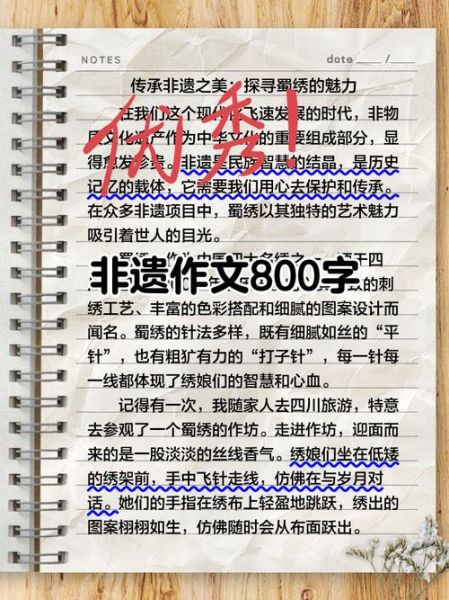 NOTES
date ___ / ___
传承非遗之美：探寻蜀绣的魅力
在我们这个现代飞速发展的时代，非物
文化遗产作为中华文化的重要组成部分，显
得愈发珍贵。非遗是民族智慧的结晶，是历史
记忆的载体，它需要我们用心去保护和传承。
在众多非遗项目中，蜀绣以其独特的艺术魅力
吸引着世人的目光。
优秀！
非遗作文800字
的刺
绣工艺、丰富的色彩搭配和细腻的图案设计而
闻名。蜀绣的针法多样，既有细腻如丝的“平
针”，也有粗犷有力的“打子针”，每一针每
一线都体现了绣娘们的智慧和心血。
记得有一次，我随家人去四川旅游，特意
去参观了一个蜀绣的作坊。走进作坊，迎面而
来的是一股淡淡的丝线香气。绣娘们坐在低矮
的绣架前，手中飞针走线，仿佛在与岁月对
话。她们的手指在绣布上轻盈地跳跃，绣出的
图案栩栩如生，仿佛随时会从布面跃出。